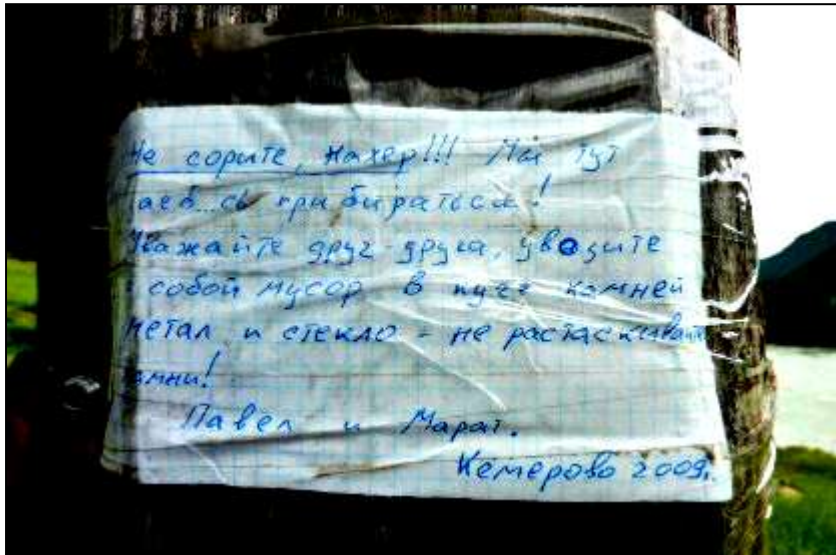 Не сорите, нахер!!! Мы тут
заеб...сь прибираться!
Уважайте друг друга, увозите
с собой мусор в куче камней
метал и стекло - не растаскивайте
камни!
Павел и Марат.
Кемерово 2009г.